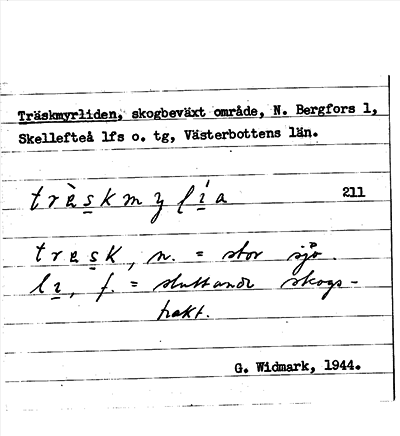 Träskmyrliden, skogbeväxt område, N. Bergfors 1,
Skellefteå lfs o. tg, Västerbottens län.
211
træsk, n. = stor sjö.
f. = sluttande skogs-
trakt.
G. Widmark, 1944.